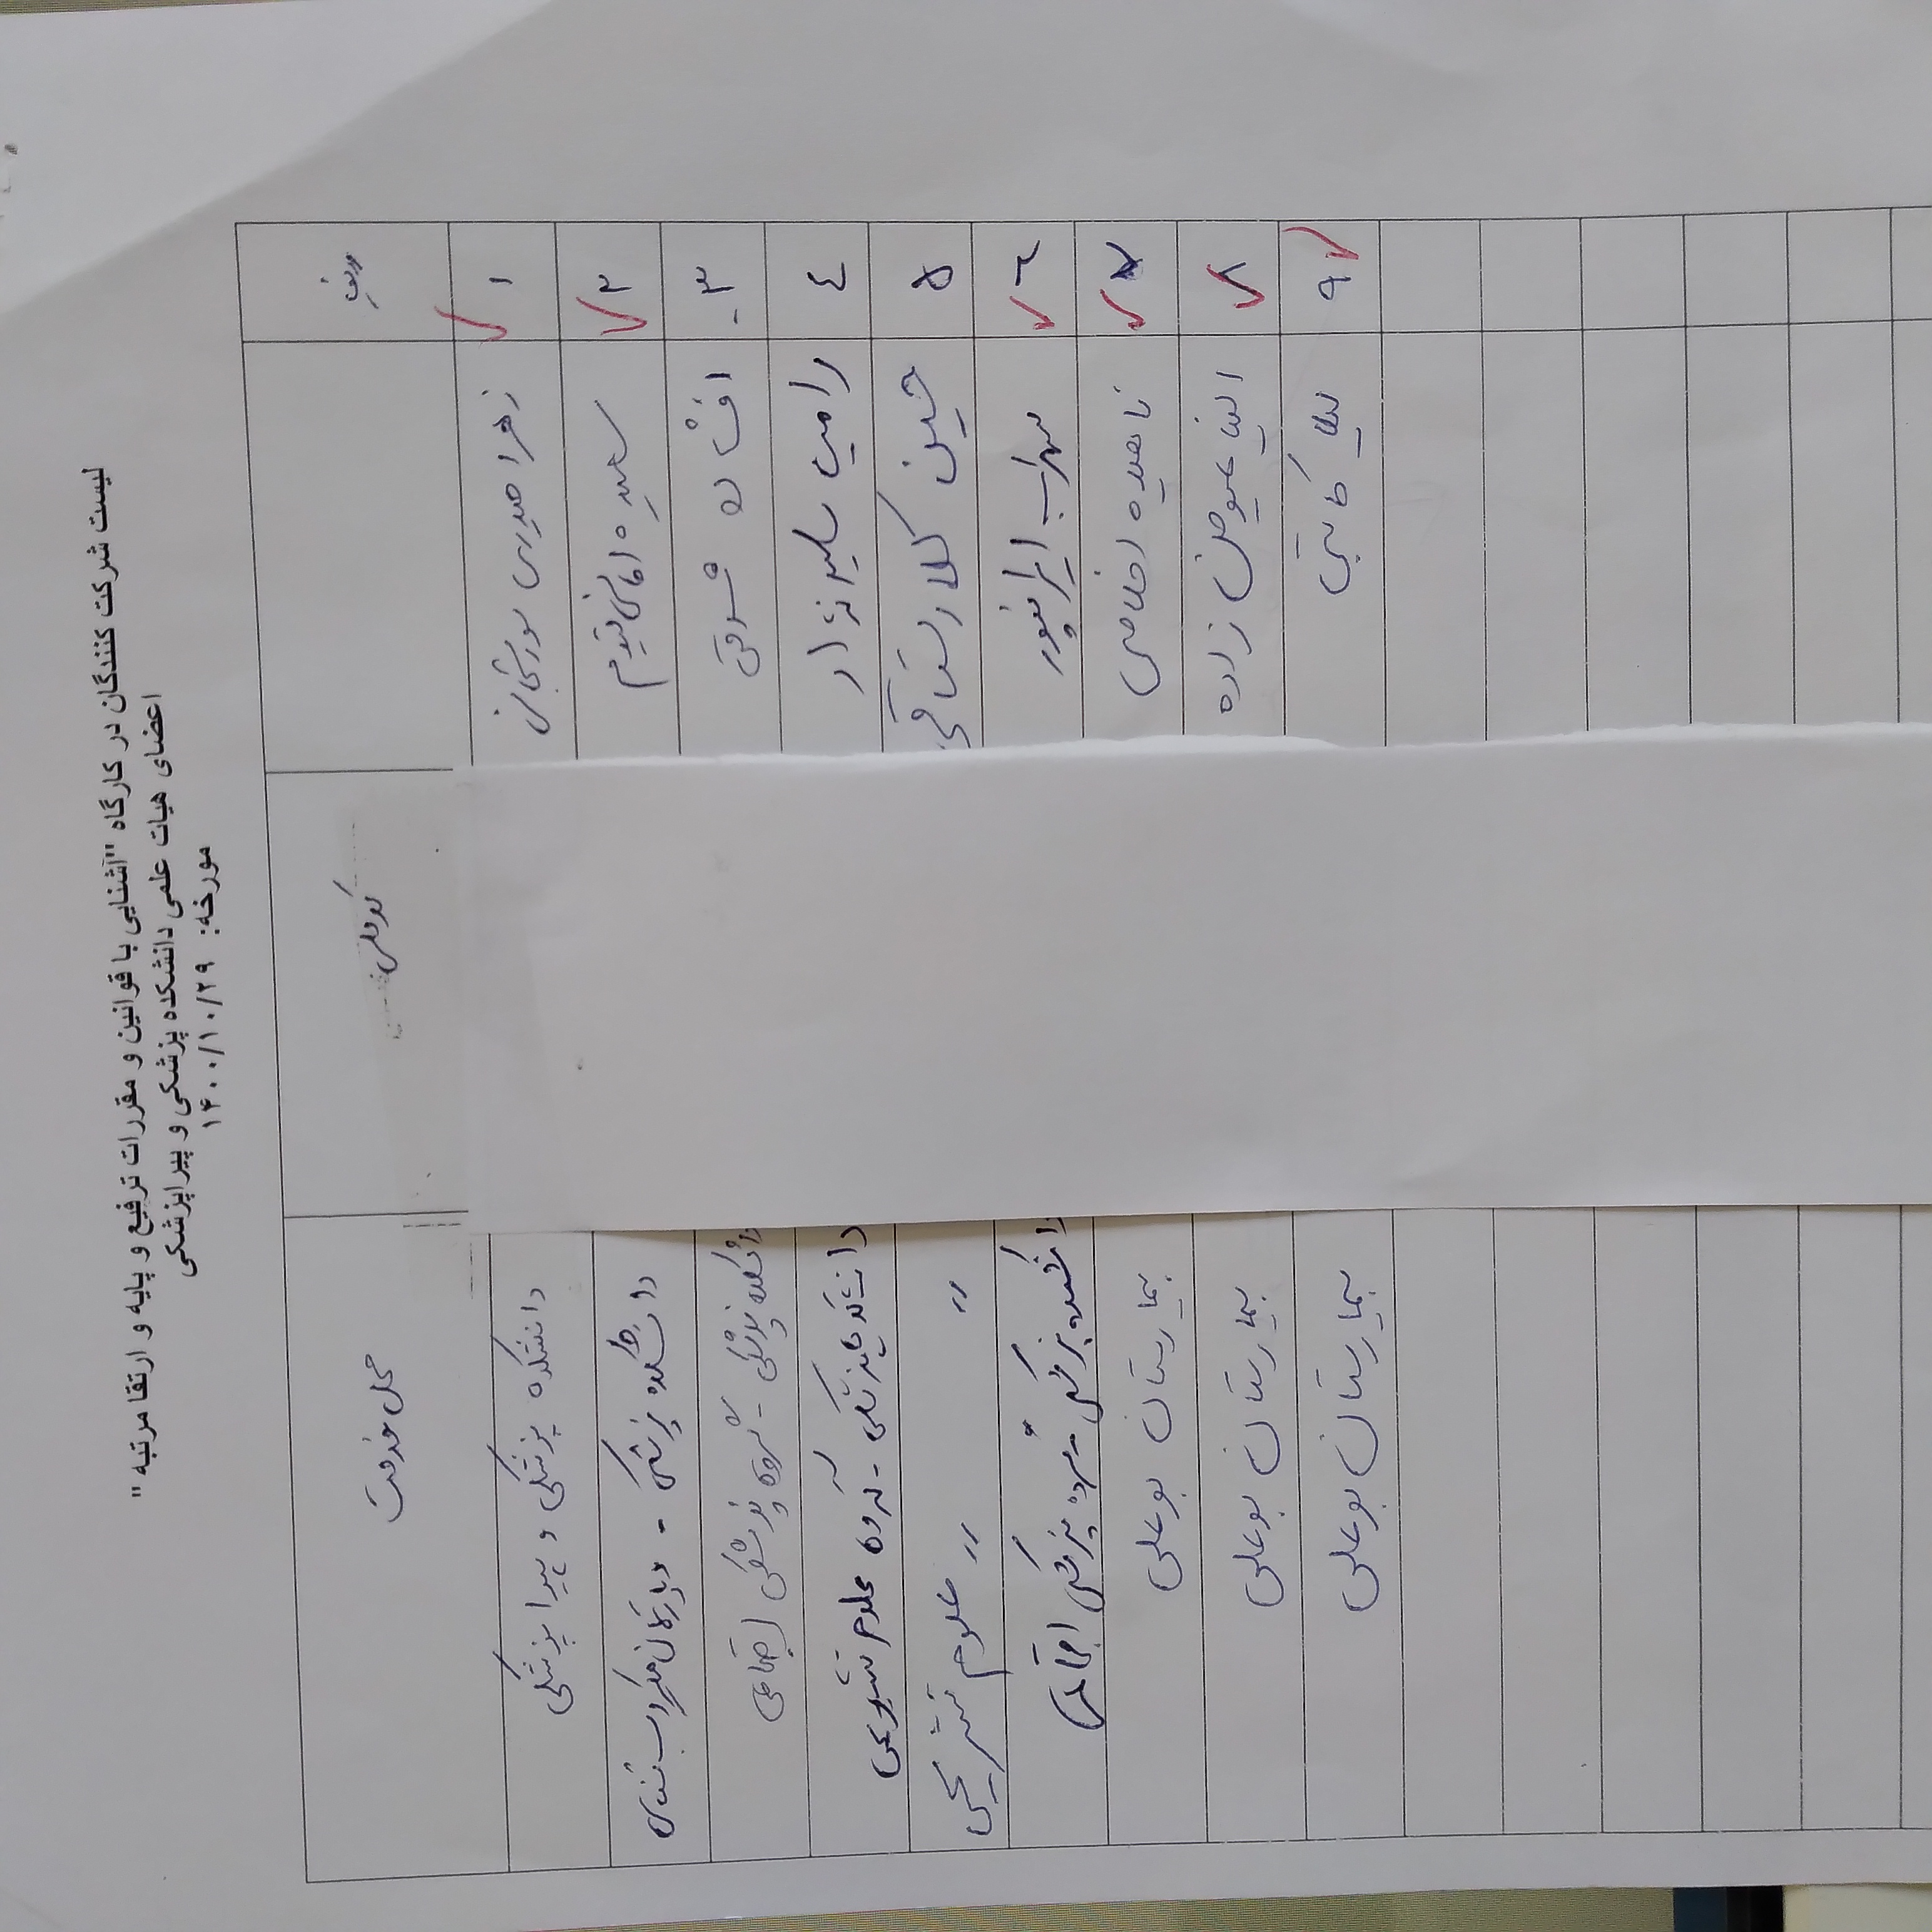 لیست شرکت کنندگان در کارگاه "آشنایی با قوانین و مقررات ترفیع و پایه و ارتقا مرتبه"
اعضای هیات علمی دانشکده پزشکی و پیراپزشکی
مورخه: ۱۴۰۰/۱۰/۲۹
ردیف کدملی محل خدمت
۱ زهرا حیدری سورشجانی دانشکده پزشکی و پیراپزشکی
۲ سعیده دانشکده پزشکی - دپارتمان میکروب شناسی
۳- افسانه شرفی دانشکده پزشکی - گروه پزشکی اجتماعی
٤ رامین سلیم نژاد دانشکده پزشکی - گروه علوم تشریحی
۵ حسین کلارستاقی " " علوم تشریحی
٦ سهراب ایرانپور دانشکده پزشکی - گروه پزشکی اجتماعی
۷ ناهیده اخلاصی بیمارستان بوعلی
۸ النا عیوض زاده بیمارستان بوعلی
۹ لیلا کاتبی بیمارستان بوعلی